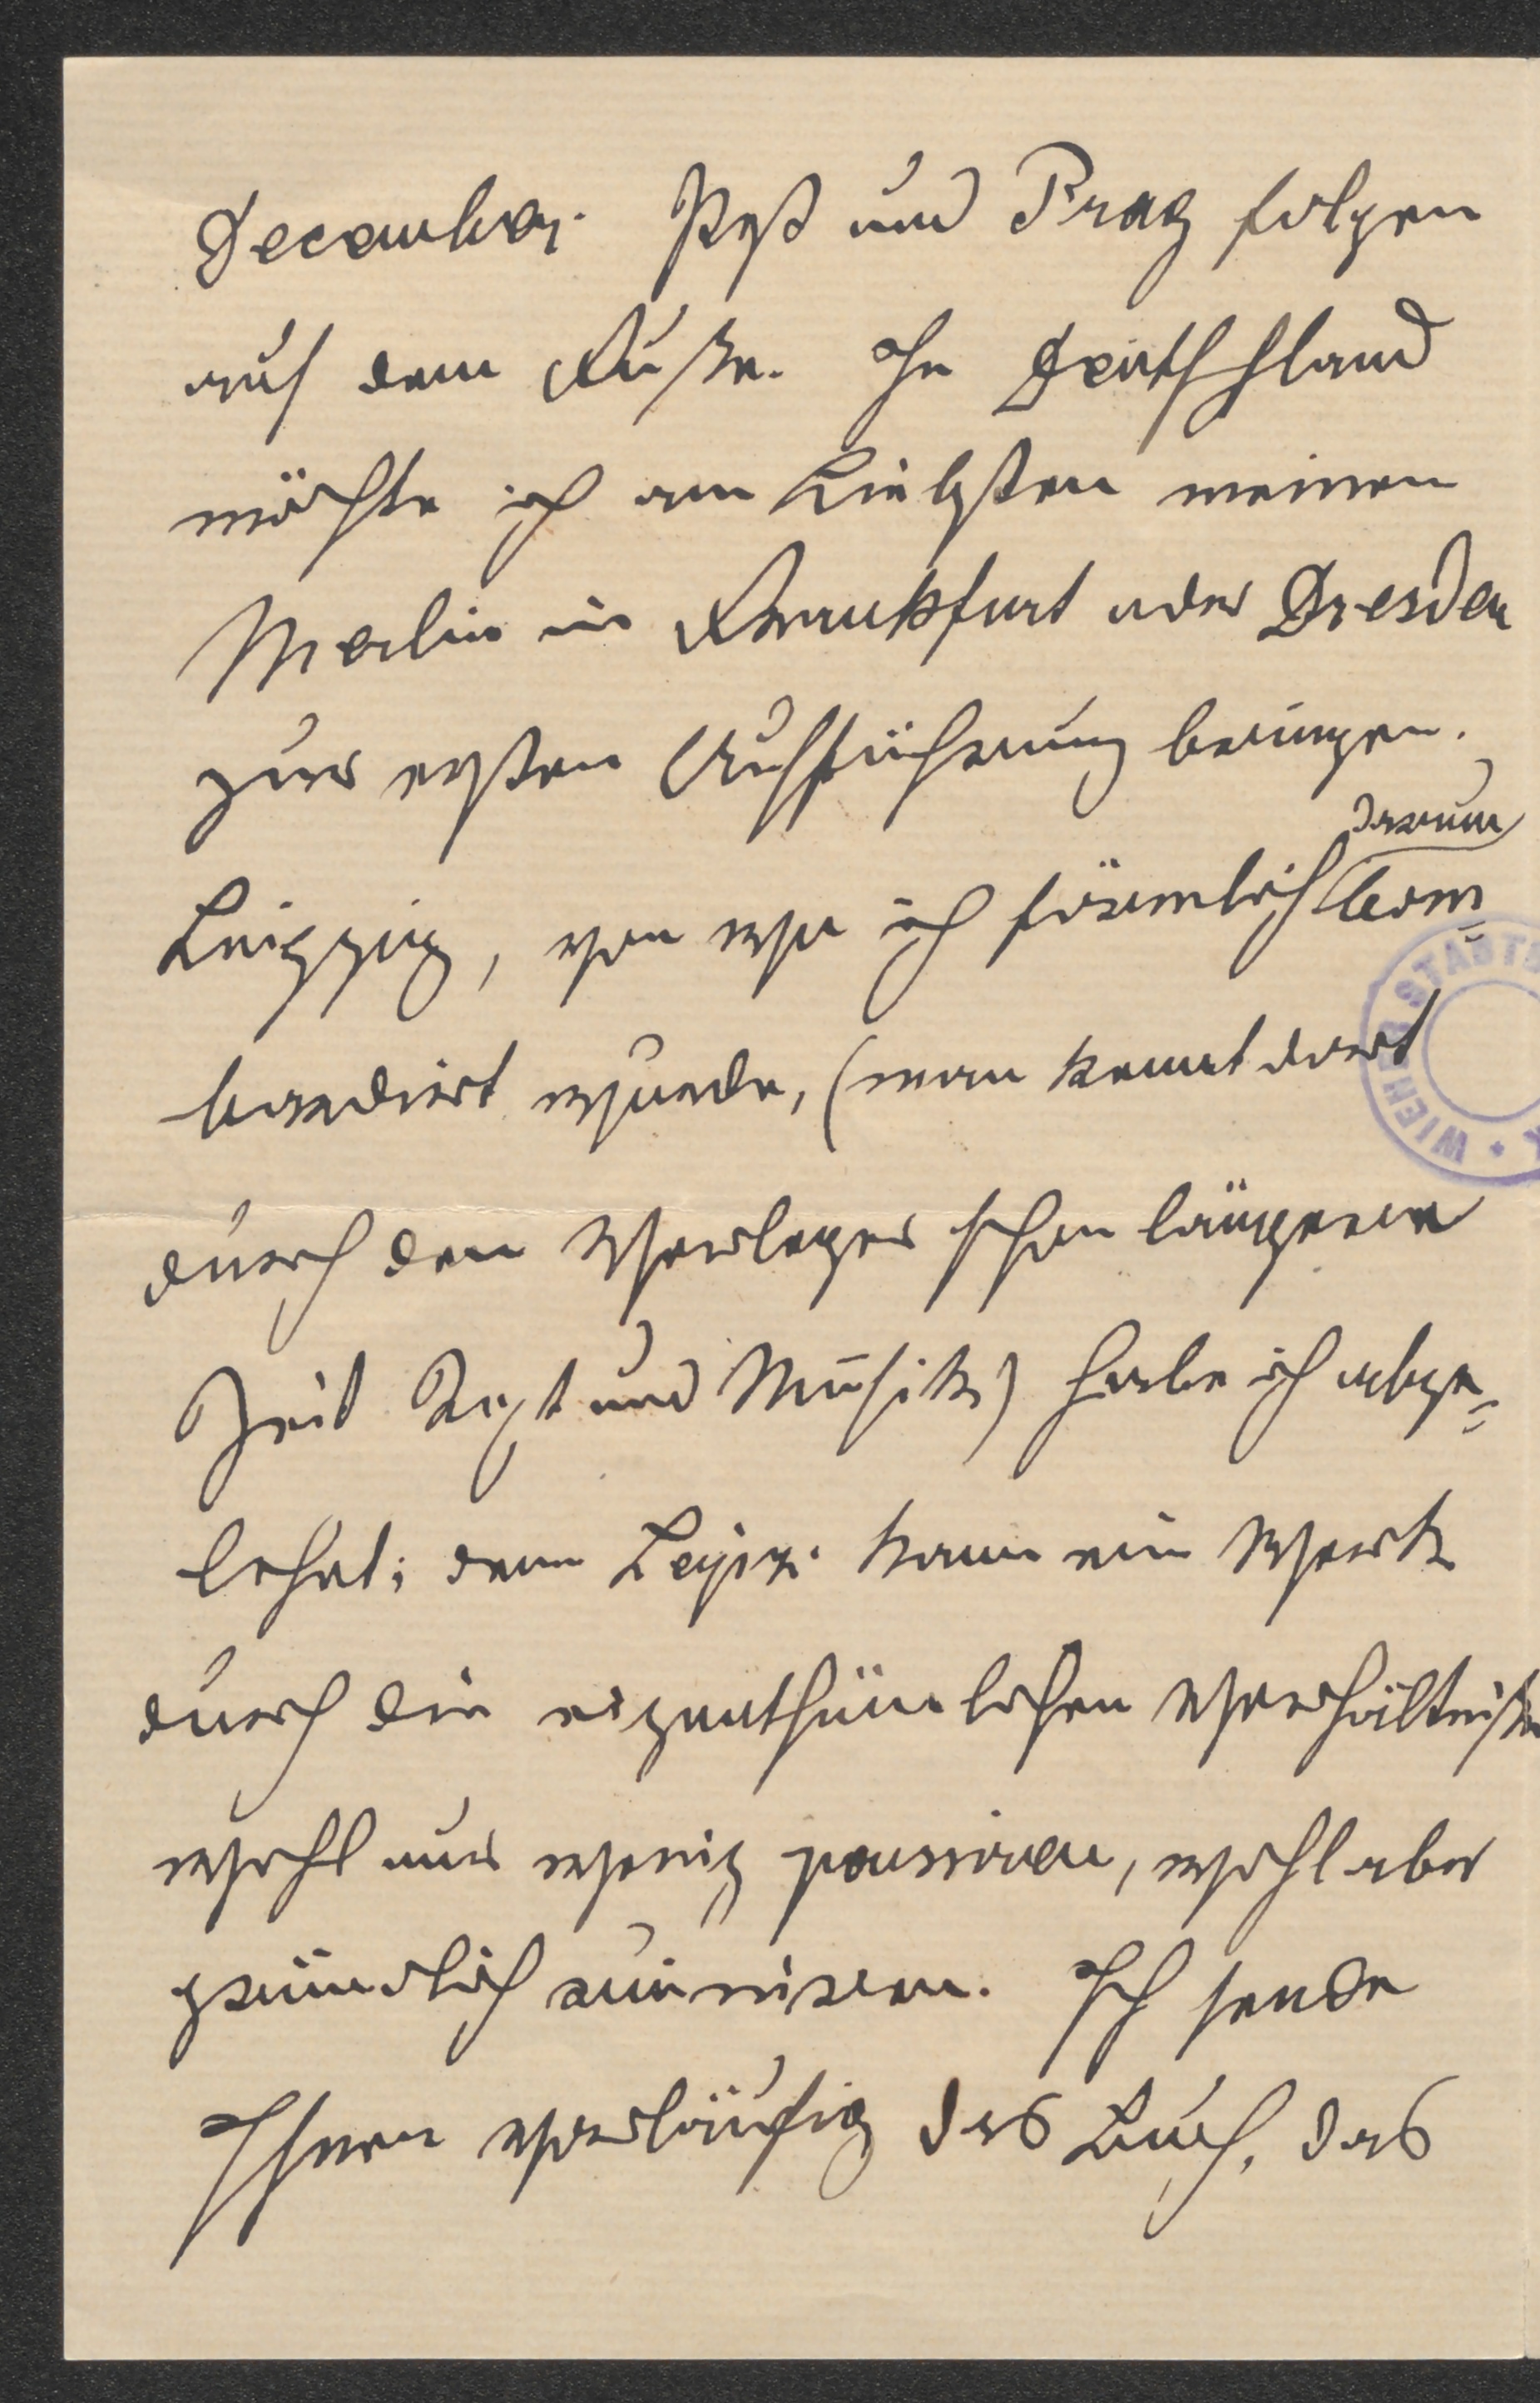 December. Pest und Prag folgen
auf dem Fuße. In Deutschland
möchte ich am Liebsten meinen
Merlin in Frankfurt oder Dresden
zur ersten Aufführung bringen.
darum
Leipzig, von wo ich förmlich bom
bardiert wurde, (man kennt dort
durch den Verleger schon längere
Zeit Text und Musik) habe ich abge=
lehnt; denn Leipz. kann ein Werk
durch die eigenthümlichen Verhältnisse
wohl nur wenig poussiren, wohl aber
gründlich ruiniren. Ich sende
Ihnen vorläufig das Buch, das
WIENER STADT